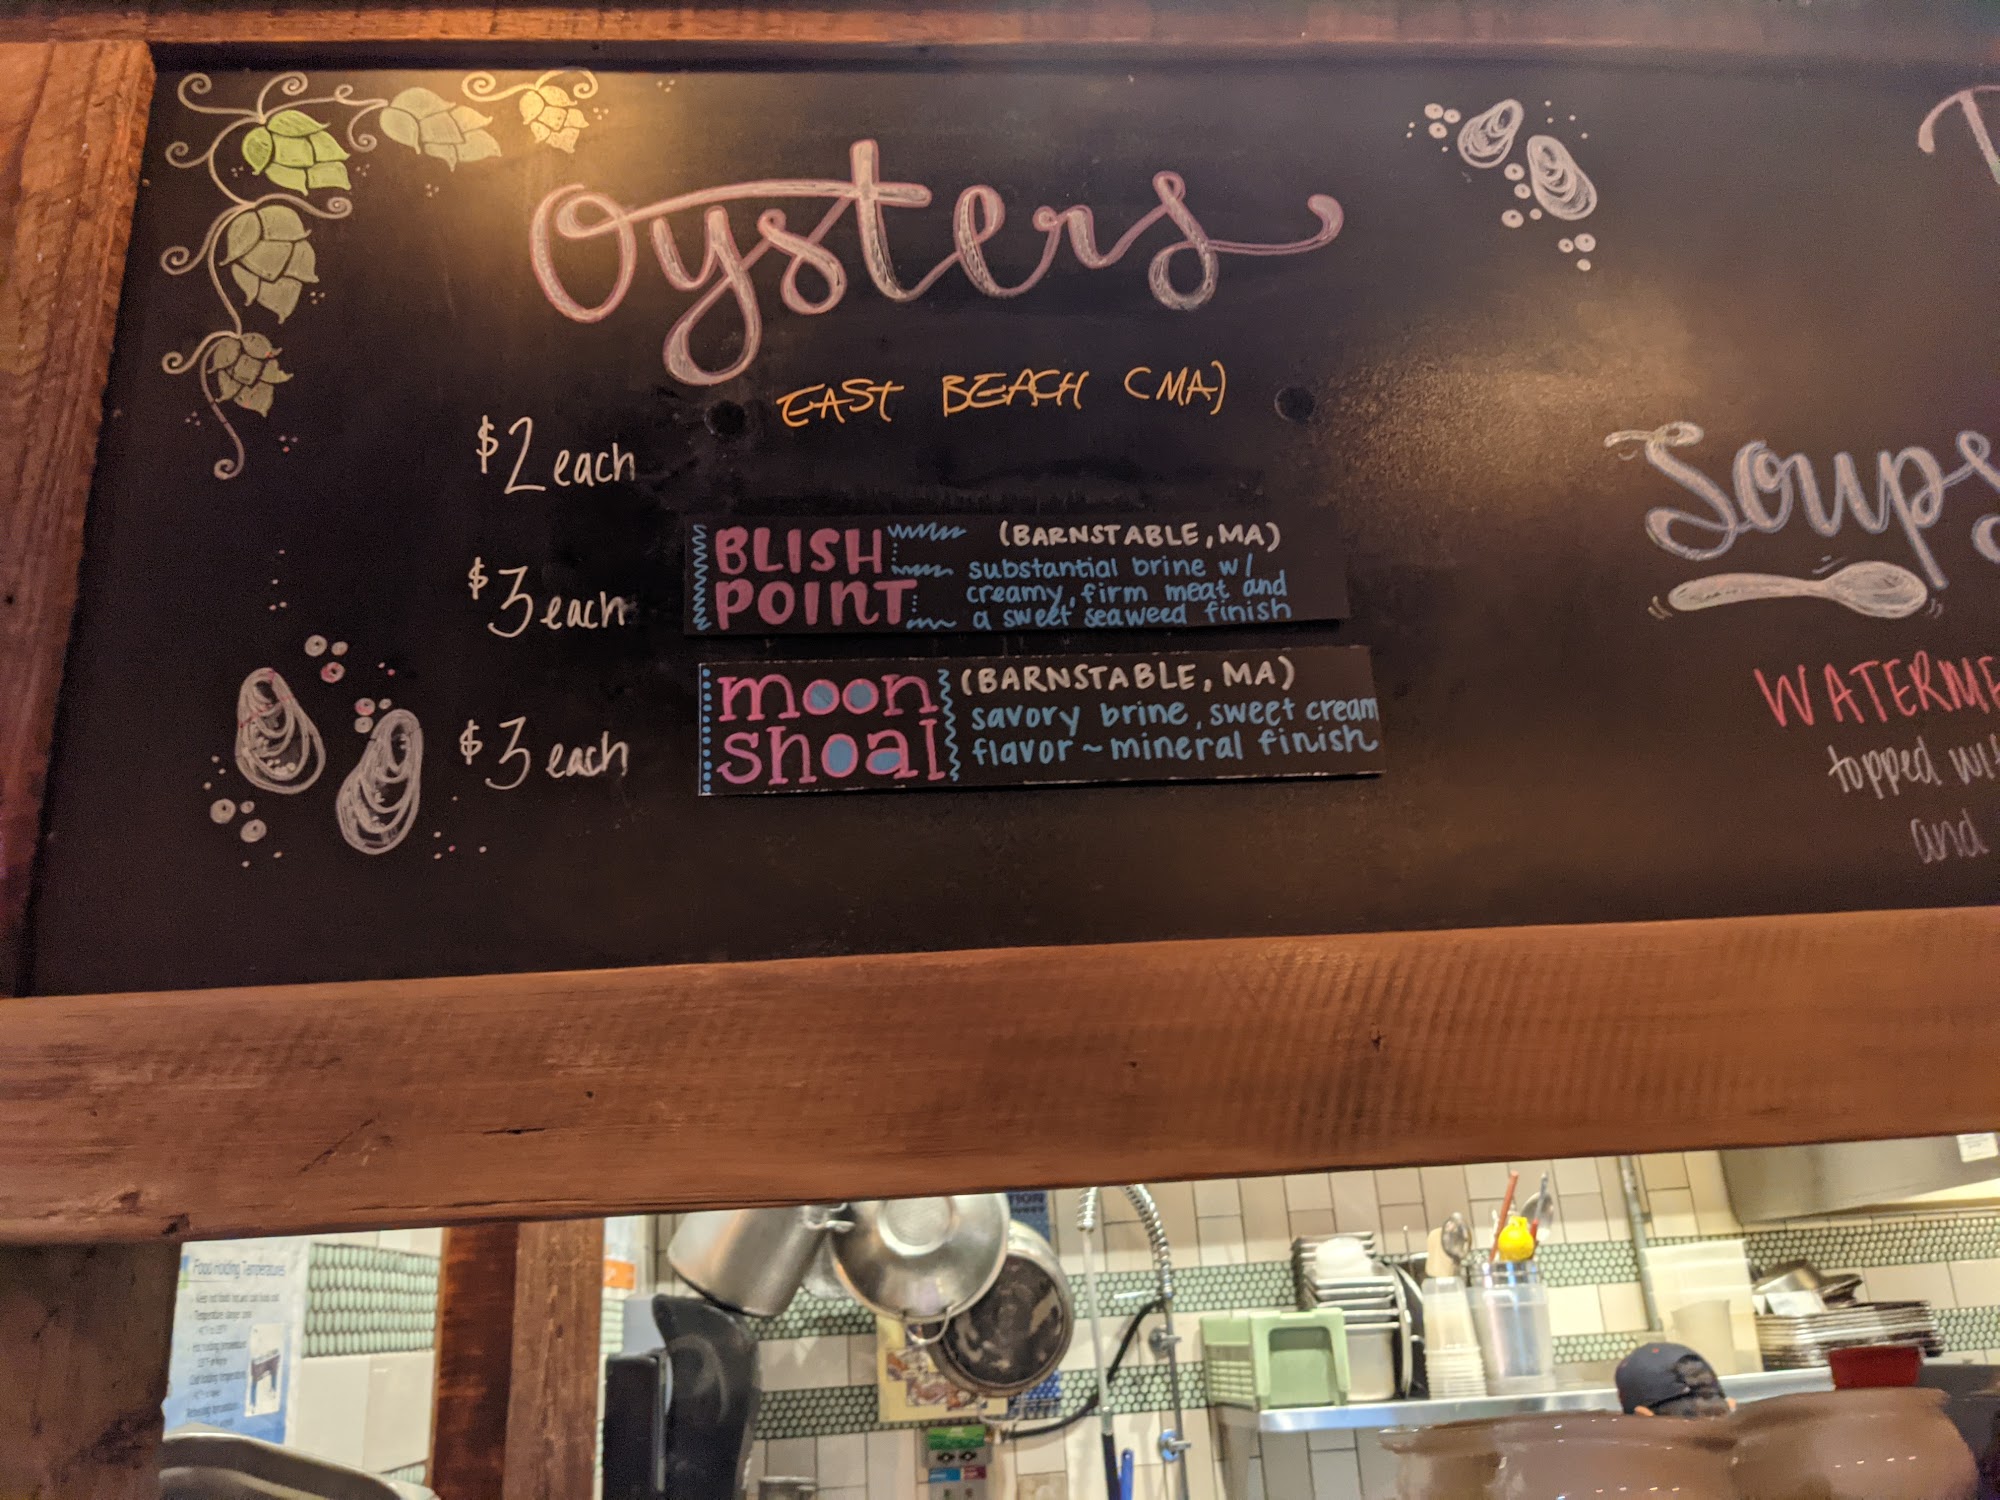 Oysters
EAST BEACH (MA)
$2 each
$3 each
BLISH
POINT
(BARNSTABLE, MA)
substantial brine w/
creamy, firm meat and
a sweet seaweed finish
$3 each
moon
shoal
(BARNSTABLE, MA)
savory brine, sweet cream
flavor ~ mineral finish
Soups
topped
and
Food Holding Temperatures